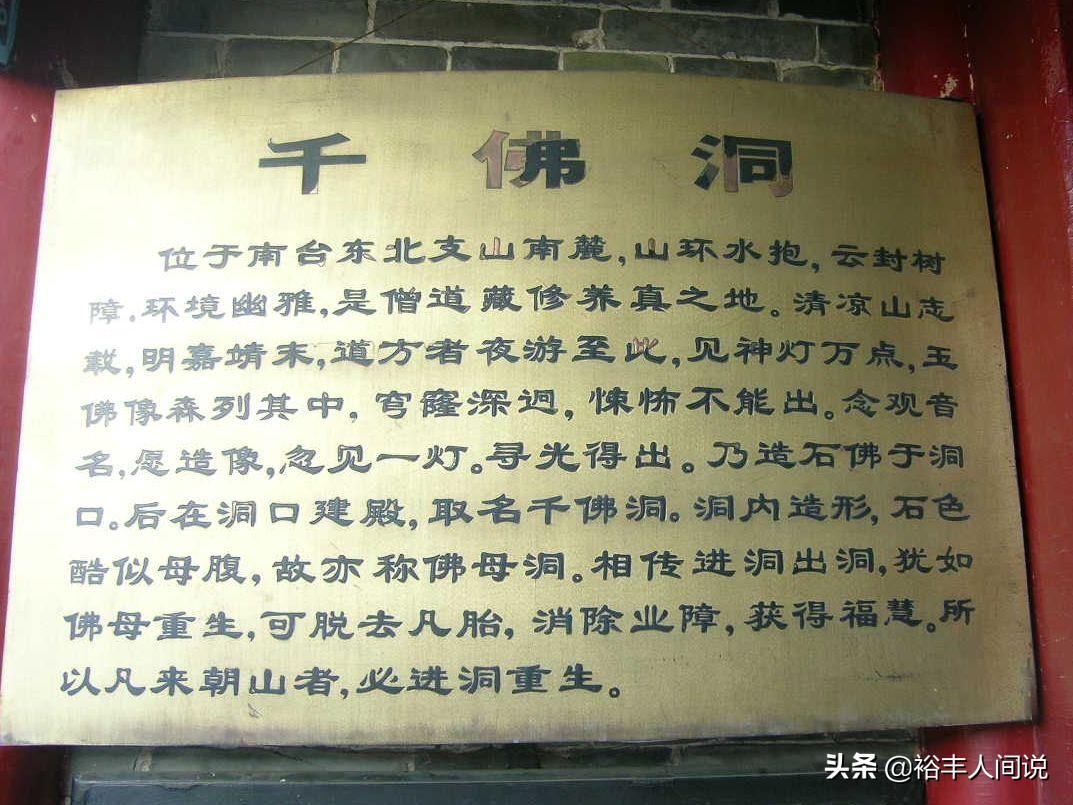 千佛洞
位于南台东北支山南麓,山环水抱,云封树
障.环境幽雅,是僧道藏修养真之地。清凉山志
载,明嘉靖末,道方者夜游至此,见神灯万点,玉
佛像森列其中,穹窿深迥,悚怖不能出。念观音
名,愿造像,忽见一灯。寻光得出。乃造石佛于洞
口。后在洞口建殿,取名千佛洞。洞内造形,石色
酷似母腹,故亦称佛母洞。相传进洞出洞,犹如
佛母重生,可脱去凡胎,消除业障,获得福慧。所
以凡来朝山者,必进洞重生。
头条 @裕丰人间说